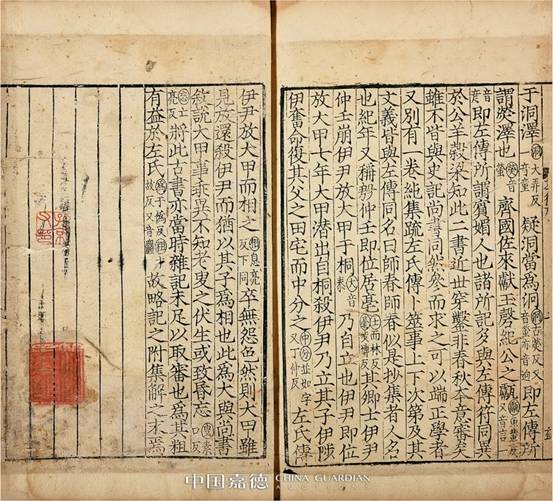 于洞澤洞大弄反音童疑洞當為泂泂古熒反即左傳所
謂熒澤也熒音螢齊國佐來獻玉磬紀公之甗甗魚輦反又音言
音彥即左傳所謂賓媚人也諸所記多與左傳符同異
於公羊穀梁知此二書近世穿鑿非春秋本意審矣
雖不皆與史記尚書同然參而求之可以端正學者
又別有一卷純集疏左氏傳卜筮事上下次第及其
文義皆與左傳同名曰師春師春似是抄集者人名
也紀年又稱殷仲壬即位居亳壬而林反其卿士伊尹
仲壬崩伊尹放大甲于桐大音泰乃自立也伊尹即位
放大甲七年大甲潛出自桐殺伊尹乃立其子伊陟
伊奮命復其父之田宅而中分之中分並如字又丁仲反左氏傳
伊尹放大甲而相之相息亮反下同卒無怨色然則大甲雖
見放還殺伊尹而猶以其子為相也此為大與尚書
敘說大甲事乖異不知老叟之伏生或致昏忘叟素口反
亮反將此古書亦當時雜記未足以取審也為其粗
有益於左氏為于偽反故略記之附集解之末焉
中国嘉德 CHINA GUARDIAN